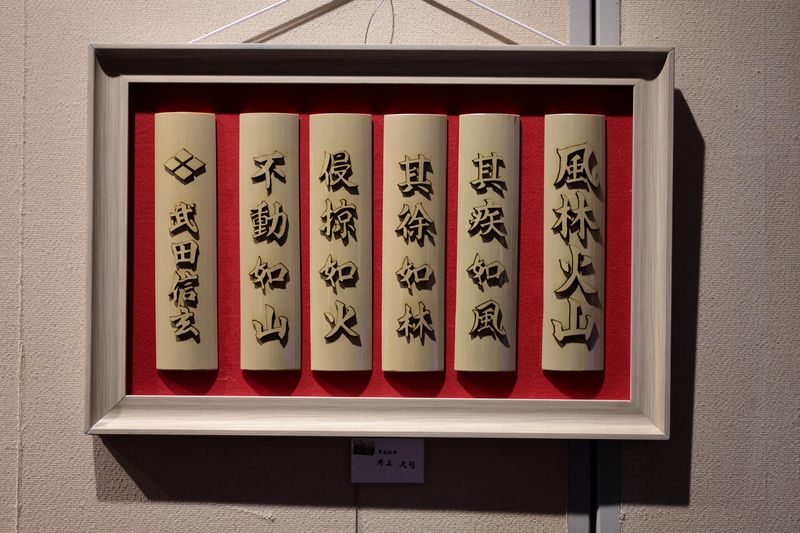 風林火山
其疾如風
其徐如林
侵掠如火
不動如山
武田信玄
井上 久司